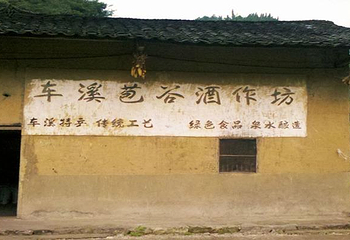 车溪苞谷酒作坊
车溪特产 传统工艺 绿色食品 泉水酿造